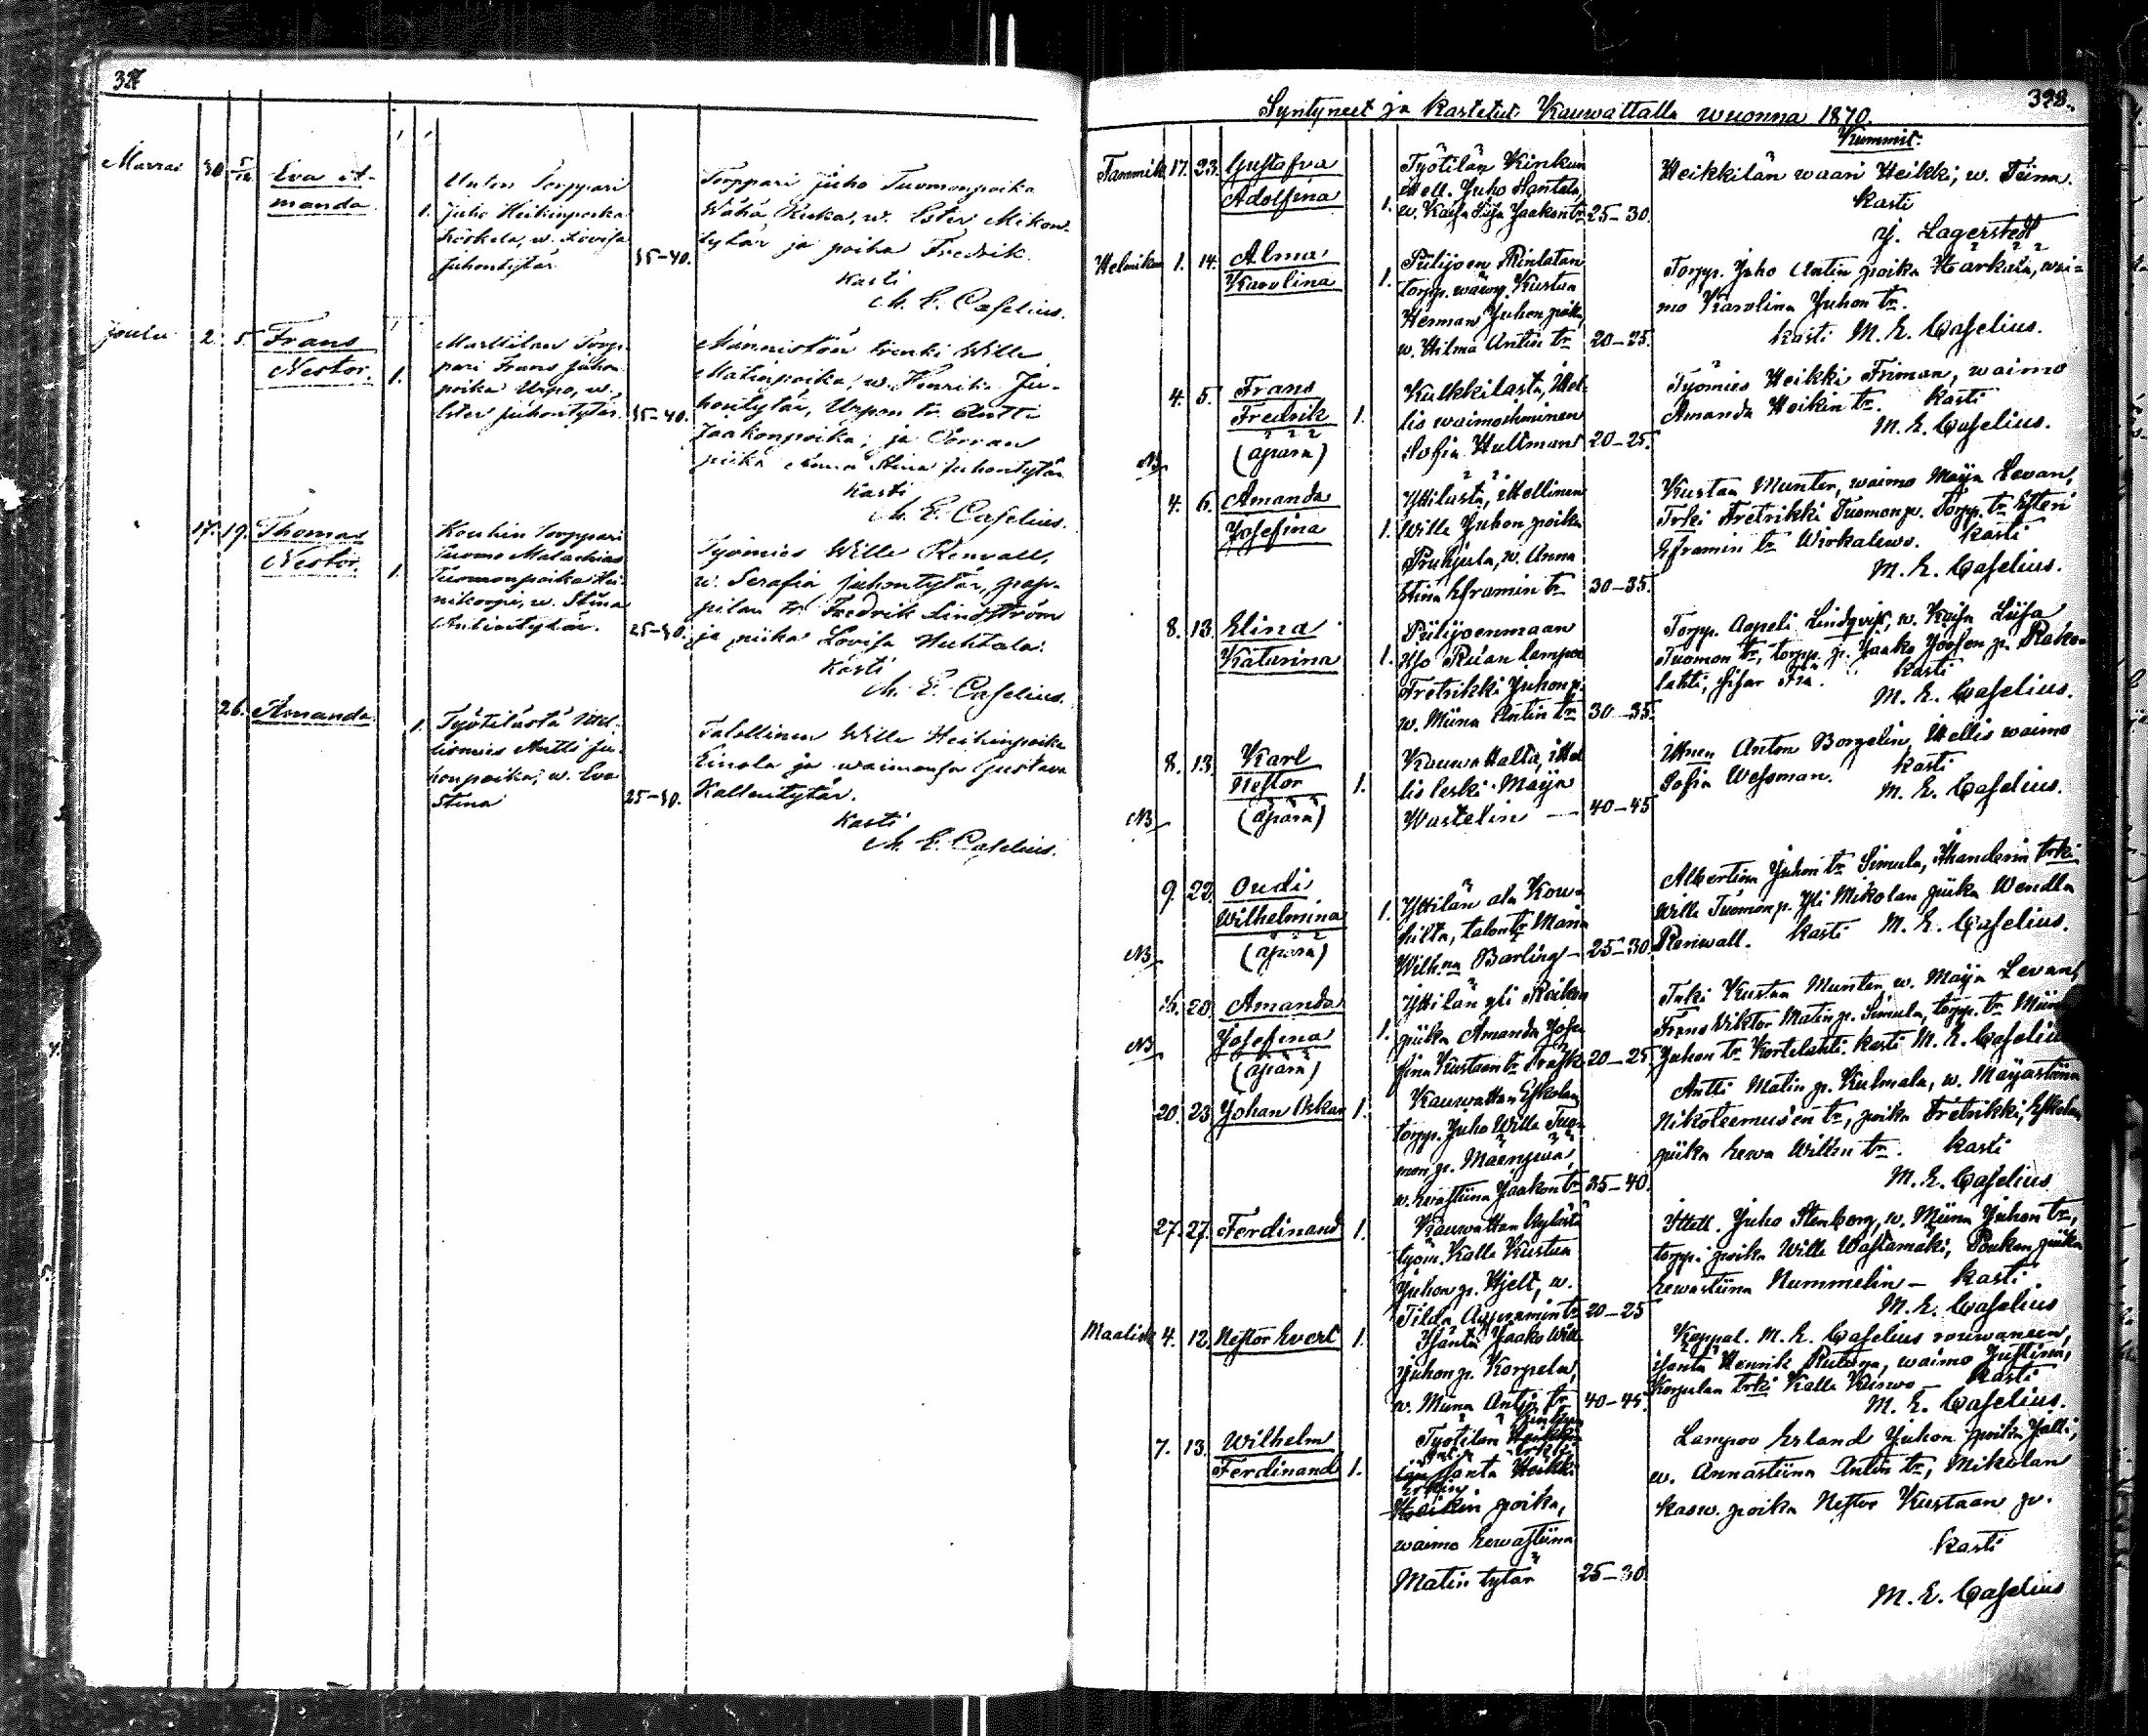 327
Marras 30 5/12 Eva A-
manda
1.
Unton Torppari
Juho Heikinpoika
Koskela, w. Lovisa
Juhontytär
35-40.
Torppari Juho Tuomonpoika
Wähä Ruka, w. Ester Mikon-
tytär ja poika Fredrik.
Kasti
M. E. Caselius.
Joulu 2. 5. Frans
Nestor. 1.
Marttilan Torp-
pari Frans Juhon
poika Urpo, w.
Ester Juhontytär.
35-40.
Männistön trenki Wille
Matinpoika, w. Henrika Ju-
hontytär, Urpon tr. Antti
Jaakonpoika; ja
piika Anna Stina Juhontytär
Kasti
M. E. Caselius.
17. 19. Thomas
Nestor. 1.
Kouhin Torppari
Tuomo Malachias
Tuomonpoika Hei-
nikorpi, w. Stina
Antintytär.
25-30.
Työmies Wille Renvall,
w. Serafia Juhontytär, pap-
pilan tr. Fredrik Lindström
ja piika Lovisa Huhtala.
Kasti
M. E. Caselius.
26. Amanda 1.
Työtilästä Itel-
lismies Antti Ju-
honpoika, w. Eva
Stina
25-30.
Talollinen Wille Heikinpoika
Einola ja waimonsa Gustava
Kallentytär.
Kasti
M. E. Caselius.
328.
Syntyneet ja Kastetut Kauwattalla wuonna 1870.
Kummit.
Tammik. 17. 23. Gustafva
Adolfina 1.
Työtilän Kinkun
Itell. Juho Hantala,
w. Kaisa Liisa Jaakon tr 25-30.
Heikkilän waari Heikki, w. Tiina.
Kasti
J. Lagerstedt
Helmikuu 1. 14. Alma
Karolina 1.
Piilijoen Rinlatan
torpp. wäwy Kustaa
Herman Juhon poika
w. Hilma Antin tr 20-25.
Torpp. Juho Antin poika Härkälä, wai-
mo Karolina Juhon tr.
Kasti M. E. Caselius.
4. 5. Frans
Fredrik 1.
(äpärä)
NB
Kulkkilasta, Itel-
lis waimoihminen
Sofia Hultman 20-25.
Työmies Heikki Friman, waimo
Amanda Heikin tr. Kasti
M. E. Caselius.
4. 6. Amanda
Josefina 1.
Yttilästä, Itellinen
Wille Juhon poika
Pruhjula, w. Anna
Stina Eframin tr 30-35.
Kustaa Munter, waimo Maija Levan,
Trki Fretrikki Tuomonp. Torpp. tr Esteri
Eframin tr Wirkalewo. Kasti
M. E. Caselius.
8. 13. Elina
Katarina 1.
Piilijoenmaan
Iso Ruan lampuo
Fretrikki Juhon p.
w. Miina Antin tr 30-35.
Torpp. Aapeli Lindqvist, w. Kaisa Liisa
Tuomon tr, torpp. p. Jaako Joosen p. Rako-
lahti, sisar Fia. Kasti
M. E. Caselius.
8. 13. Karl
Nestor 1.
(äpärä)
NB
Kauwattalta, Itel-
lis leski Maija
Wastelin — 40-45
Ittnen Anton Borgelin, Itellis waimo
Sofia Wessman. Kasti
M. E. Caselius.
9. 22. Oudi
Wilhelmina 1.
(äpärä)
NB
Yttilän ala Kou-
hilta, talon tr Maria
Wilh:na Barling — 25-30
Albertina Juhon tr Simula, Ihanderin trki
Wille Tuomon p. Yli Mikolan piika Wendla
Renwall. Kasti M. E. Caselius.
15. 20. Amanda
Josefina 1.
(äpärä)
NB
Yttilän yli Reikon
piika Amanda Jose-
fina Kustaan tr Träsk 20-25
Trki Kustaa Munter, w. Maija Levan,
Frans Viktor Matin p. Simula, torpp. tr Miin
Juhon tr Kortelahti. Kasti M. E. Caselius
20. 23. Johan Oskar 1.
Kauwattan Eskolan
torpp. Juho Wille Tuo-
mon p. Mäenpää,
w. Ewastiina Jaakon tr 35-40.
Antti Matin p. Kulmala, w. Maijastiina
Nikoteemuksen tr, poika Fretrikki, Eskolan
piika Eewa Willen tr. Kasti
M. E. Caselius
27. 27. Ferdinand 1.
Kauwattan kylästä
työm. Kalle Kustaa
Juhon p. Hjelt, w.
Tilda Apramin tr 20-25
Itell. Juho Stenborg, w. Miina Juhon tr,
torpp. poika Wille Wastamäki, Poukan piika
Eewastiina Nummelin — Kasti
M. E. Caselius
Maalisk. 4. 12. Nestor Evert 1.
Isäntä Jaako Wille
Juhon p. Korpela,
w. Miina Antin tr 40-45.
Kappal. M. E. Caselius rouwaneen,
isäntä Henrik Rutawa, waimo Justina,
Korpelan trki Kalle Kuiwo — Kasti
M. E. Caselius.
7. 13. Wilhelm
Ferdinand 1.
Työtilän
isäntä Heikki
Heikin poika,
waimo Eewastiina
Matin tytär 25-30.
Lampuo Erland Juhon poika Jalli,
w. Annastiina Antin tr, Mikolan
kasw. poika Nestor Kustaan p.
Kasti
M. E. Caselius